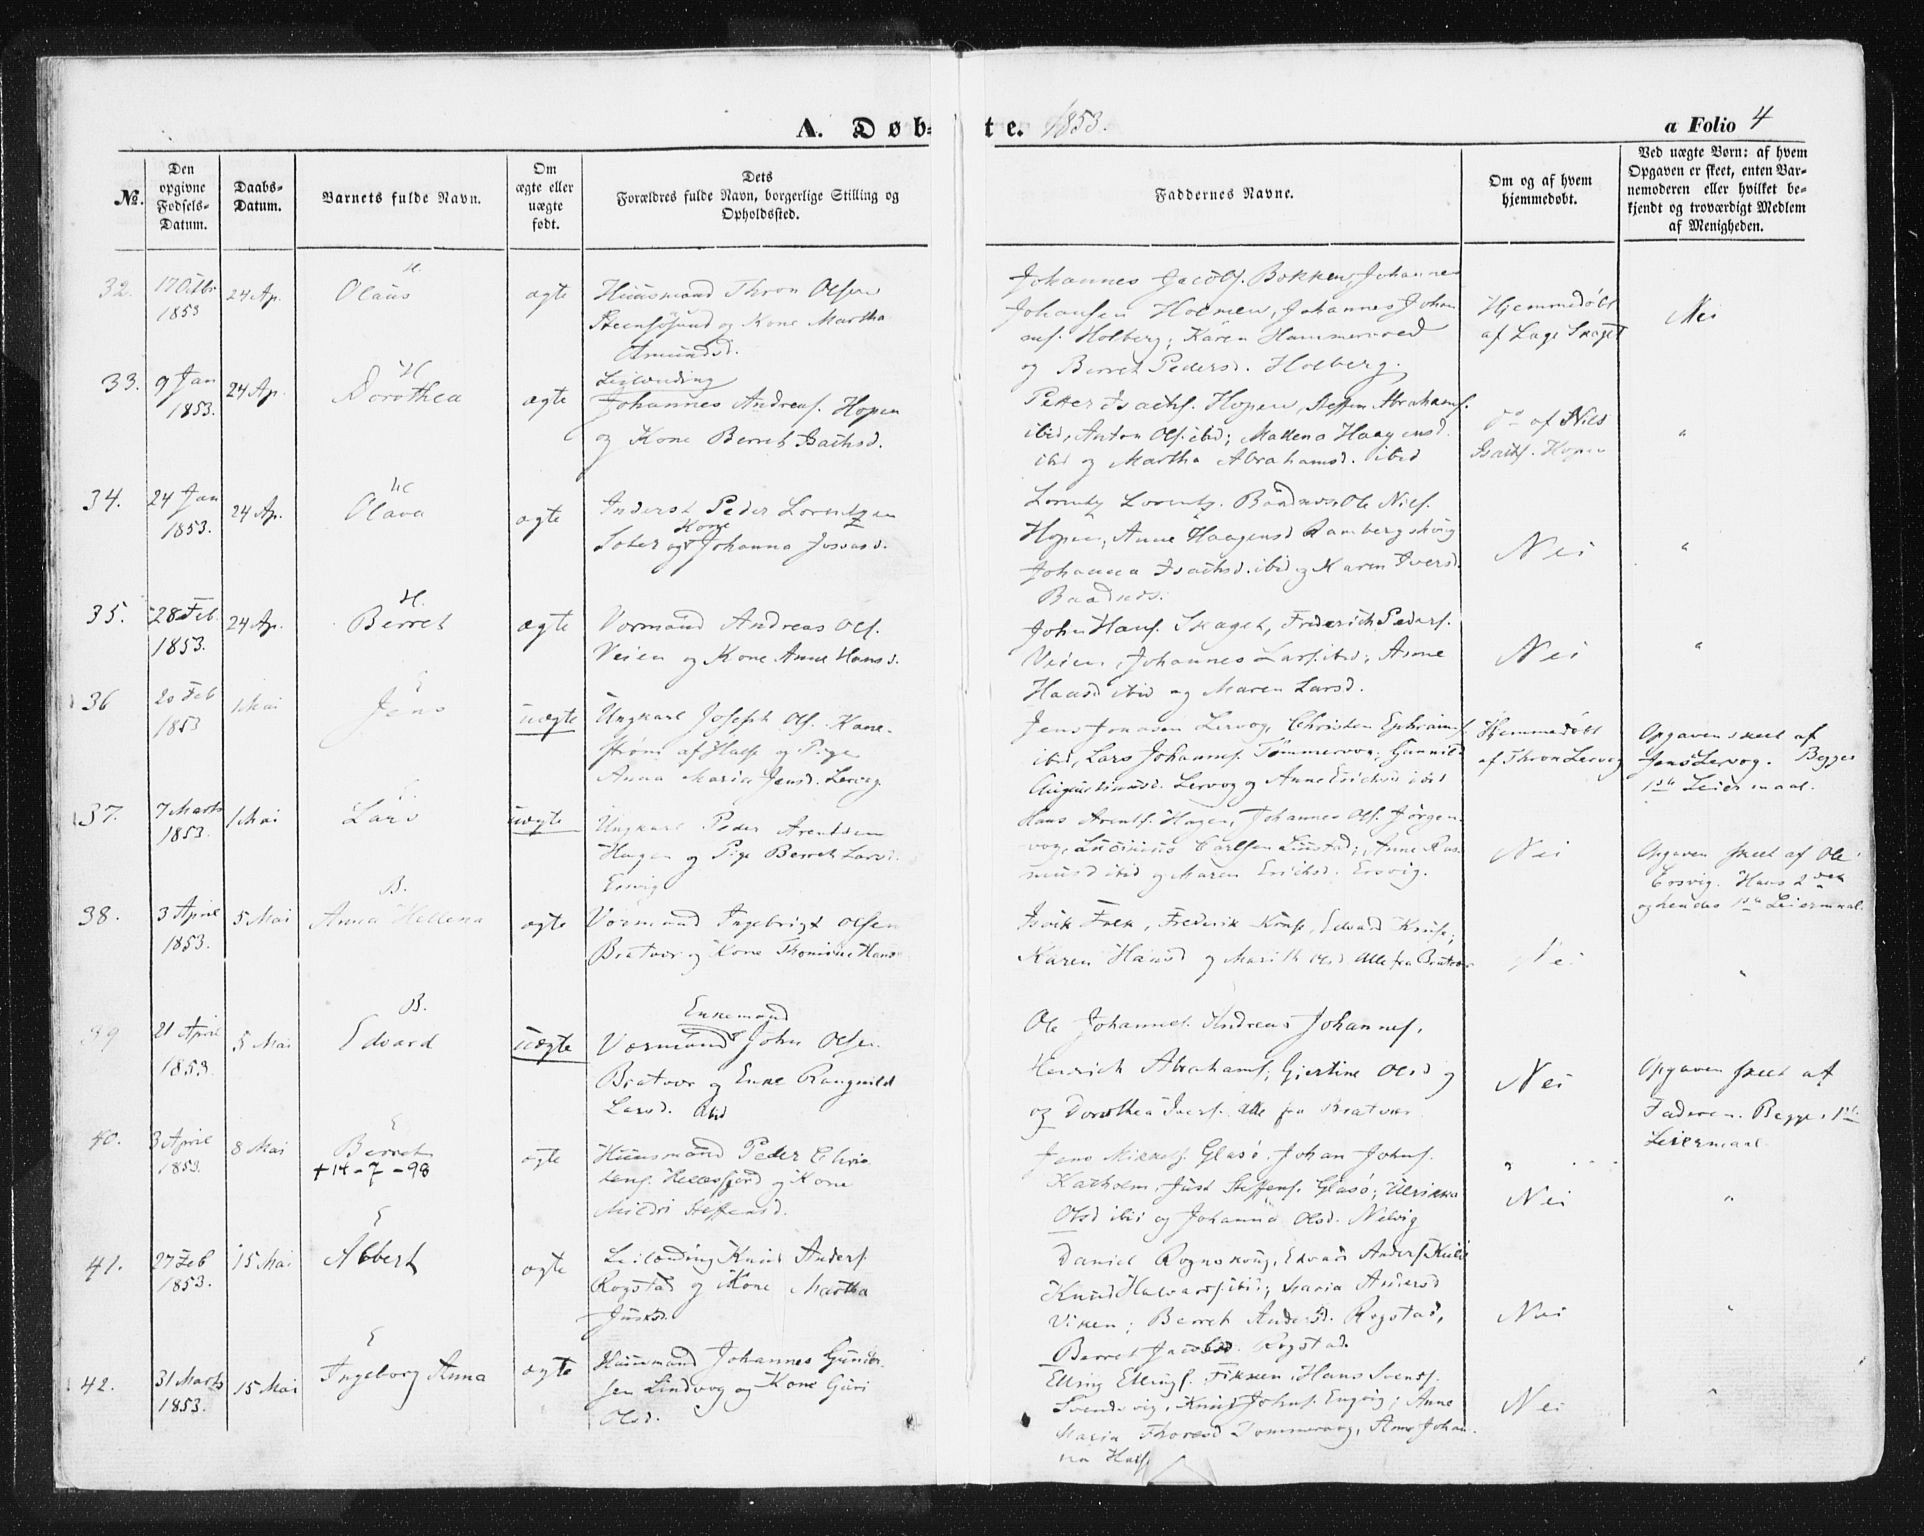 A. Døb= te. 1853.
a Folio 4
No.
Den opgivne Fødsels-Datum.
Daabs-Datum.
Barnets fulde Navn.
Om ægte eller uægte født.
Dets Forældres fulde Navn, borgerlige Stilling og Opholdssted.
Faddernes Navne.
Om og af hvem hjemmedøbt.
Ved uægte Børn: af hvem Opgaven er skeet, enten Barnemoderen eller hvilket bekjendt og troværdigt Medlem af Menigheden.
32. 17 Octbr 1853 24 Ap. H. Olaus ægte
Huusmand Thron Olsen
og Kone Martha
Amundsd.
Johannes Jacobs. Bokken, Johannes
Johansen Holmen, Johannes Johan
ens. Holberg; Karen Hammerved
og Berret Pedersd. Holberg.
Hjemmedøbt
af Lage Skaget
Nei
33. 9 Jan 1853. 24 Ap. H Dorothea ægte
Leilænding
Johannes Andreas. Hopen
og Kone Berret Isachsd.
Petter Isachs. Hopen, Steffen Abrahams.
ibid, Anton Ols. ibid; Mallena Haagensd.
ibid og Martha Abrahamsd. ibid
do af Nils
Isachs. Hopen
"
34. 24 Jan 1853. 24 Ap. H Olava ægte
Inderst Peder Lorentzen
Kone
og Johanna
Lorentz Lorentz. Baadnes Ole Nils.
Hopen, Anne Haagensd Rambergskoug
Johanna Isachsd. ibid og Karen Iversd.
Baadnes.
Nei
"
35. 28 Feb 1853. 24 Ap. H. Berret ægte
Vormand Andreas Ols.
Veien og Kone Anne Hansd.
John Hans. Skaget, Friderich Peders.
Veien, Johannes Lars. ibid; Anne
Hansd ibid og Maren Larsd.
Nei
"
36 20 Feb 1853 1 Mai E Jens uægte
Ungkarl Joseph Ols. Kane-
strøm af Halse og Pige
Anna Maria Jensd. Lervog
Jens Jonasen Lervog, Christen Ephraims.
ibid, Lars Johanns. Tømmervog; Gunnild
Augustinusd. Lervog og Anne Erichsd ibid
Hjemmedøbt
af Thron Lervog
Opgaven skeet af
Jens Lervog. Begges
1ste Leiermaal.
37. 7 Marts 1853. 1 Mai E. Lars uægte
Ungkarl Peder Arentsen
Hagen og Pige Berret Larsd.
Ersvig
Hans Arents. Hagen, Johannes Ols. Jørgen-
vog, Carlsen; Anne Ras
musd ibid og Maren Erichsd. Ersvig.
Nei
Opgaven skeet af Ole
Ersvig. Hans 2den
og hendes 1ste Leiermaal.
38. 3 April 1853. 5 Mai B. Anna Hellena ægte
Vormand Ingebrigt Olsen
Bratvær og Kone Thomine Hans
Isak Falk, Frederik Kruse, Edvard Kruse;
Karen Hansd og Marith Olsd Alle fra Bratvær
Nei
"
39 21 April 1853. 5 Mai B. Edvard uægte
Enkemand
Vormand John Olsen
Bratvær og Enke Rangnild
Larsd. ibid
Ole Johannes. Andreas Johannes.
Henrich Abrahams; Gjertine Olsd og
og Dorothea Ivers. Alle fra Bratvær
Nei
Opgaven skeet af
Faderen. Begges 1ste
Leiermaal
40. 3 April 1853. 8 Mai E Berret ægte
+ 14-7-98
Huusmand Peder Chris
tens. og Kone
Mildri Steffensd.
Jens Mikkels. Glasø. Johan Johns.
Katholm, Just Steffens. Glasø; Ulrikka
Olsd ibid og Johanna Olsd. Nelvig
Nei
"
41. 27 Feb 1853. 15 Mai E Albert ægte
Leilænding Knud Anders.
Rogstad og Kone Martha
Justsd.
Daniel Rognskoug, Edvard Anders.
Knud Halvors. ibid; Maria Andersd
Viken; Berret Andersd. Rogstad,
Berret Jacobsd. Rogstad.
Nei
"
42. 31 Marts 1853. 15 Mai E Ingeborg Anna ægte
Huusmand Johannes Gunder-
sen Lindvog og Kone Guri
Olsd.
Elling Ellings. Fikken, Hans Svends.
Svendsvig, Knud Johns. Engvig; Anne
Maria Thoresd Tømmervog, Anne Johan-
na Hals.
Nei
"